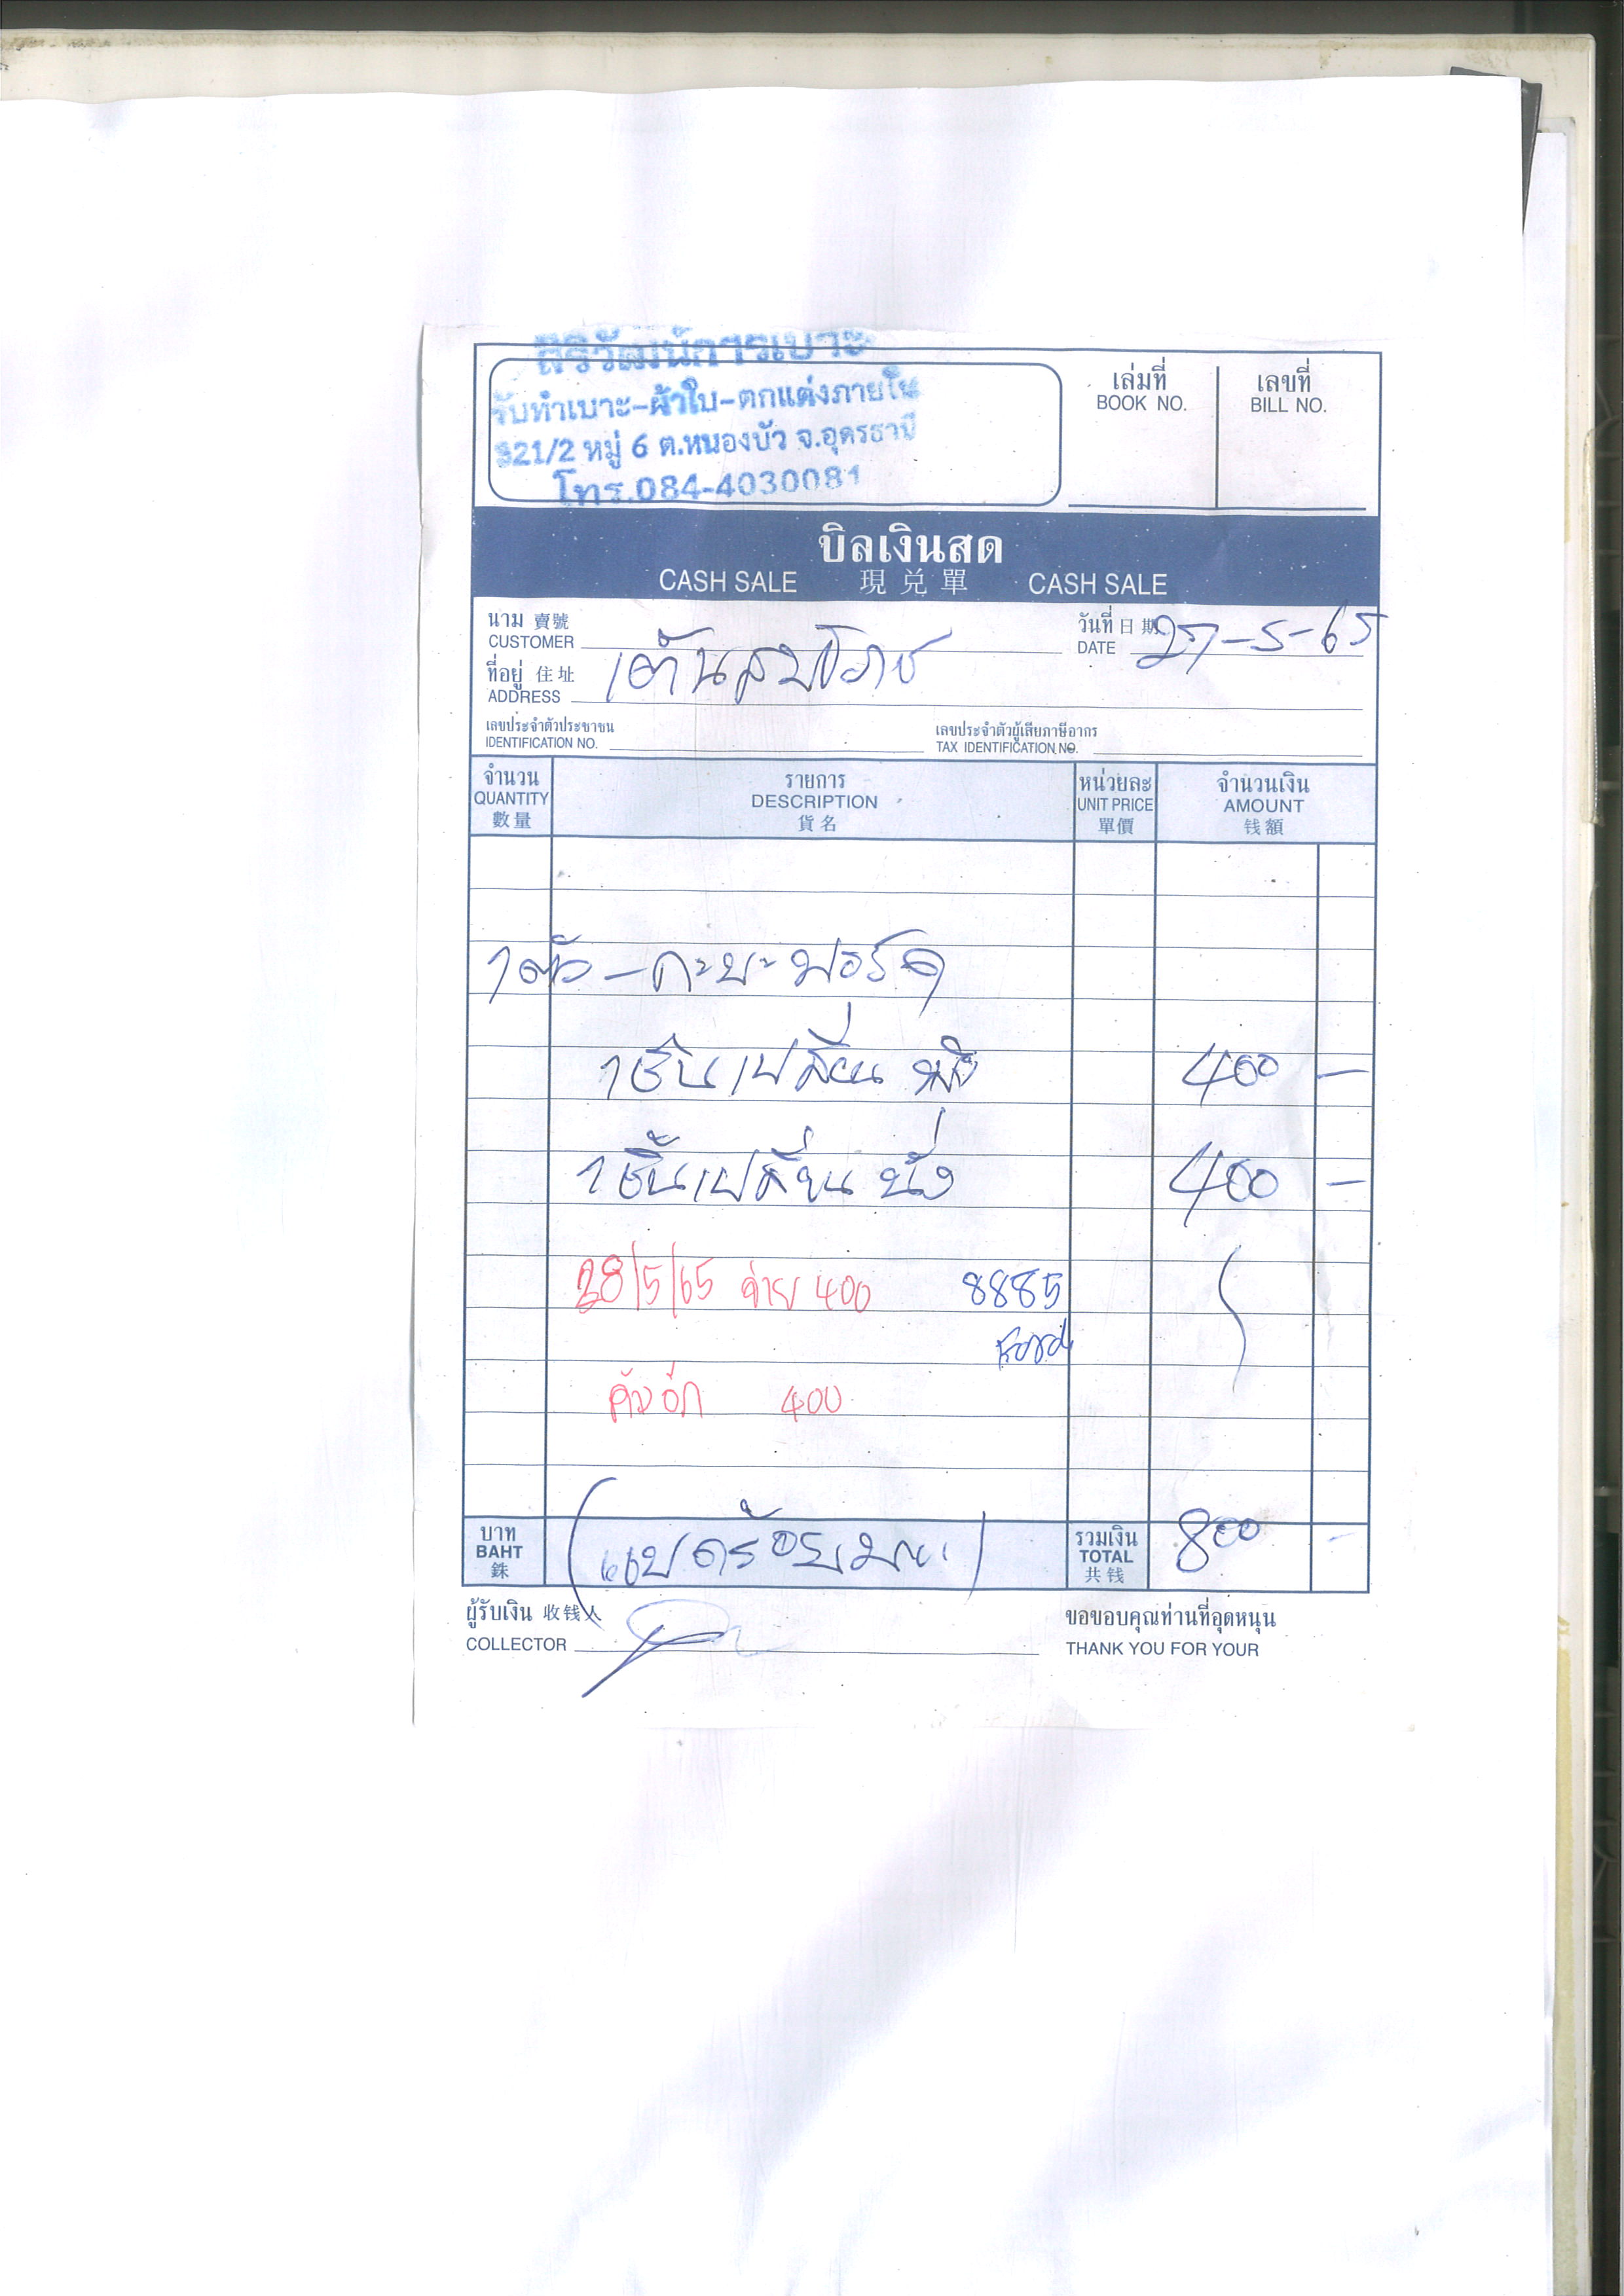 สิริวัฒน์การเบาะ
รับทำเบาะ-ผ้าใบ-ตกแต่งภายใน
321/2 หมู่ 6 ต.หนองบัว จ.อุดรธานี
โทร.084-4030081
เล่มที่ เลขที่
BOOK NO. BILL NO.
บิลเงินสด
CASH SALE 現兑單 CASH SALE
นาม 賣號 วันที่ 日期 27-5-65
CUSTOMER DATE
ที่อยู่ 住址 เต้น
ADDRESS
เลขประจำตัวประชาชน เลขประจำตัวผู้เสียภาษีอากร
IDENTIFICATION NO. TAX IDENTIFICATION NO.
จำนวน รายการ หน่วยละ จำนวนเงิน
QUANTITY DESCRIPTION UNIT PRICE AMOUNT
數量 貨名 單價 钱額
1 ตัว - กะบะฟอร์ด
1 ชิ้นเปลี่ยน 400 -
1 ชิ้นเปลี่ยน นั่ง 400 -
28/5/65 จ่าย 400 8885
Ford
ค้างอีก 400
บาท (แปดร้อย) รวมเงิน 800 -
BAHT TOTAL
銖 共钱
ผู้รับเงิน 收钱人 ขอขอบคุณท่านที่อุดหนุน
COLLECTOR THANK YOU FOR YOUR